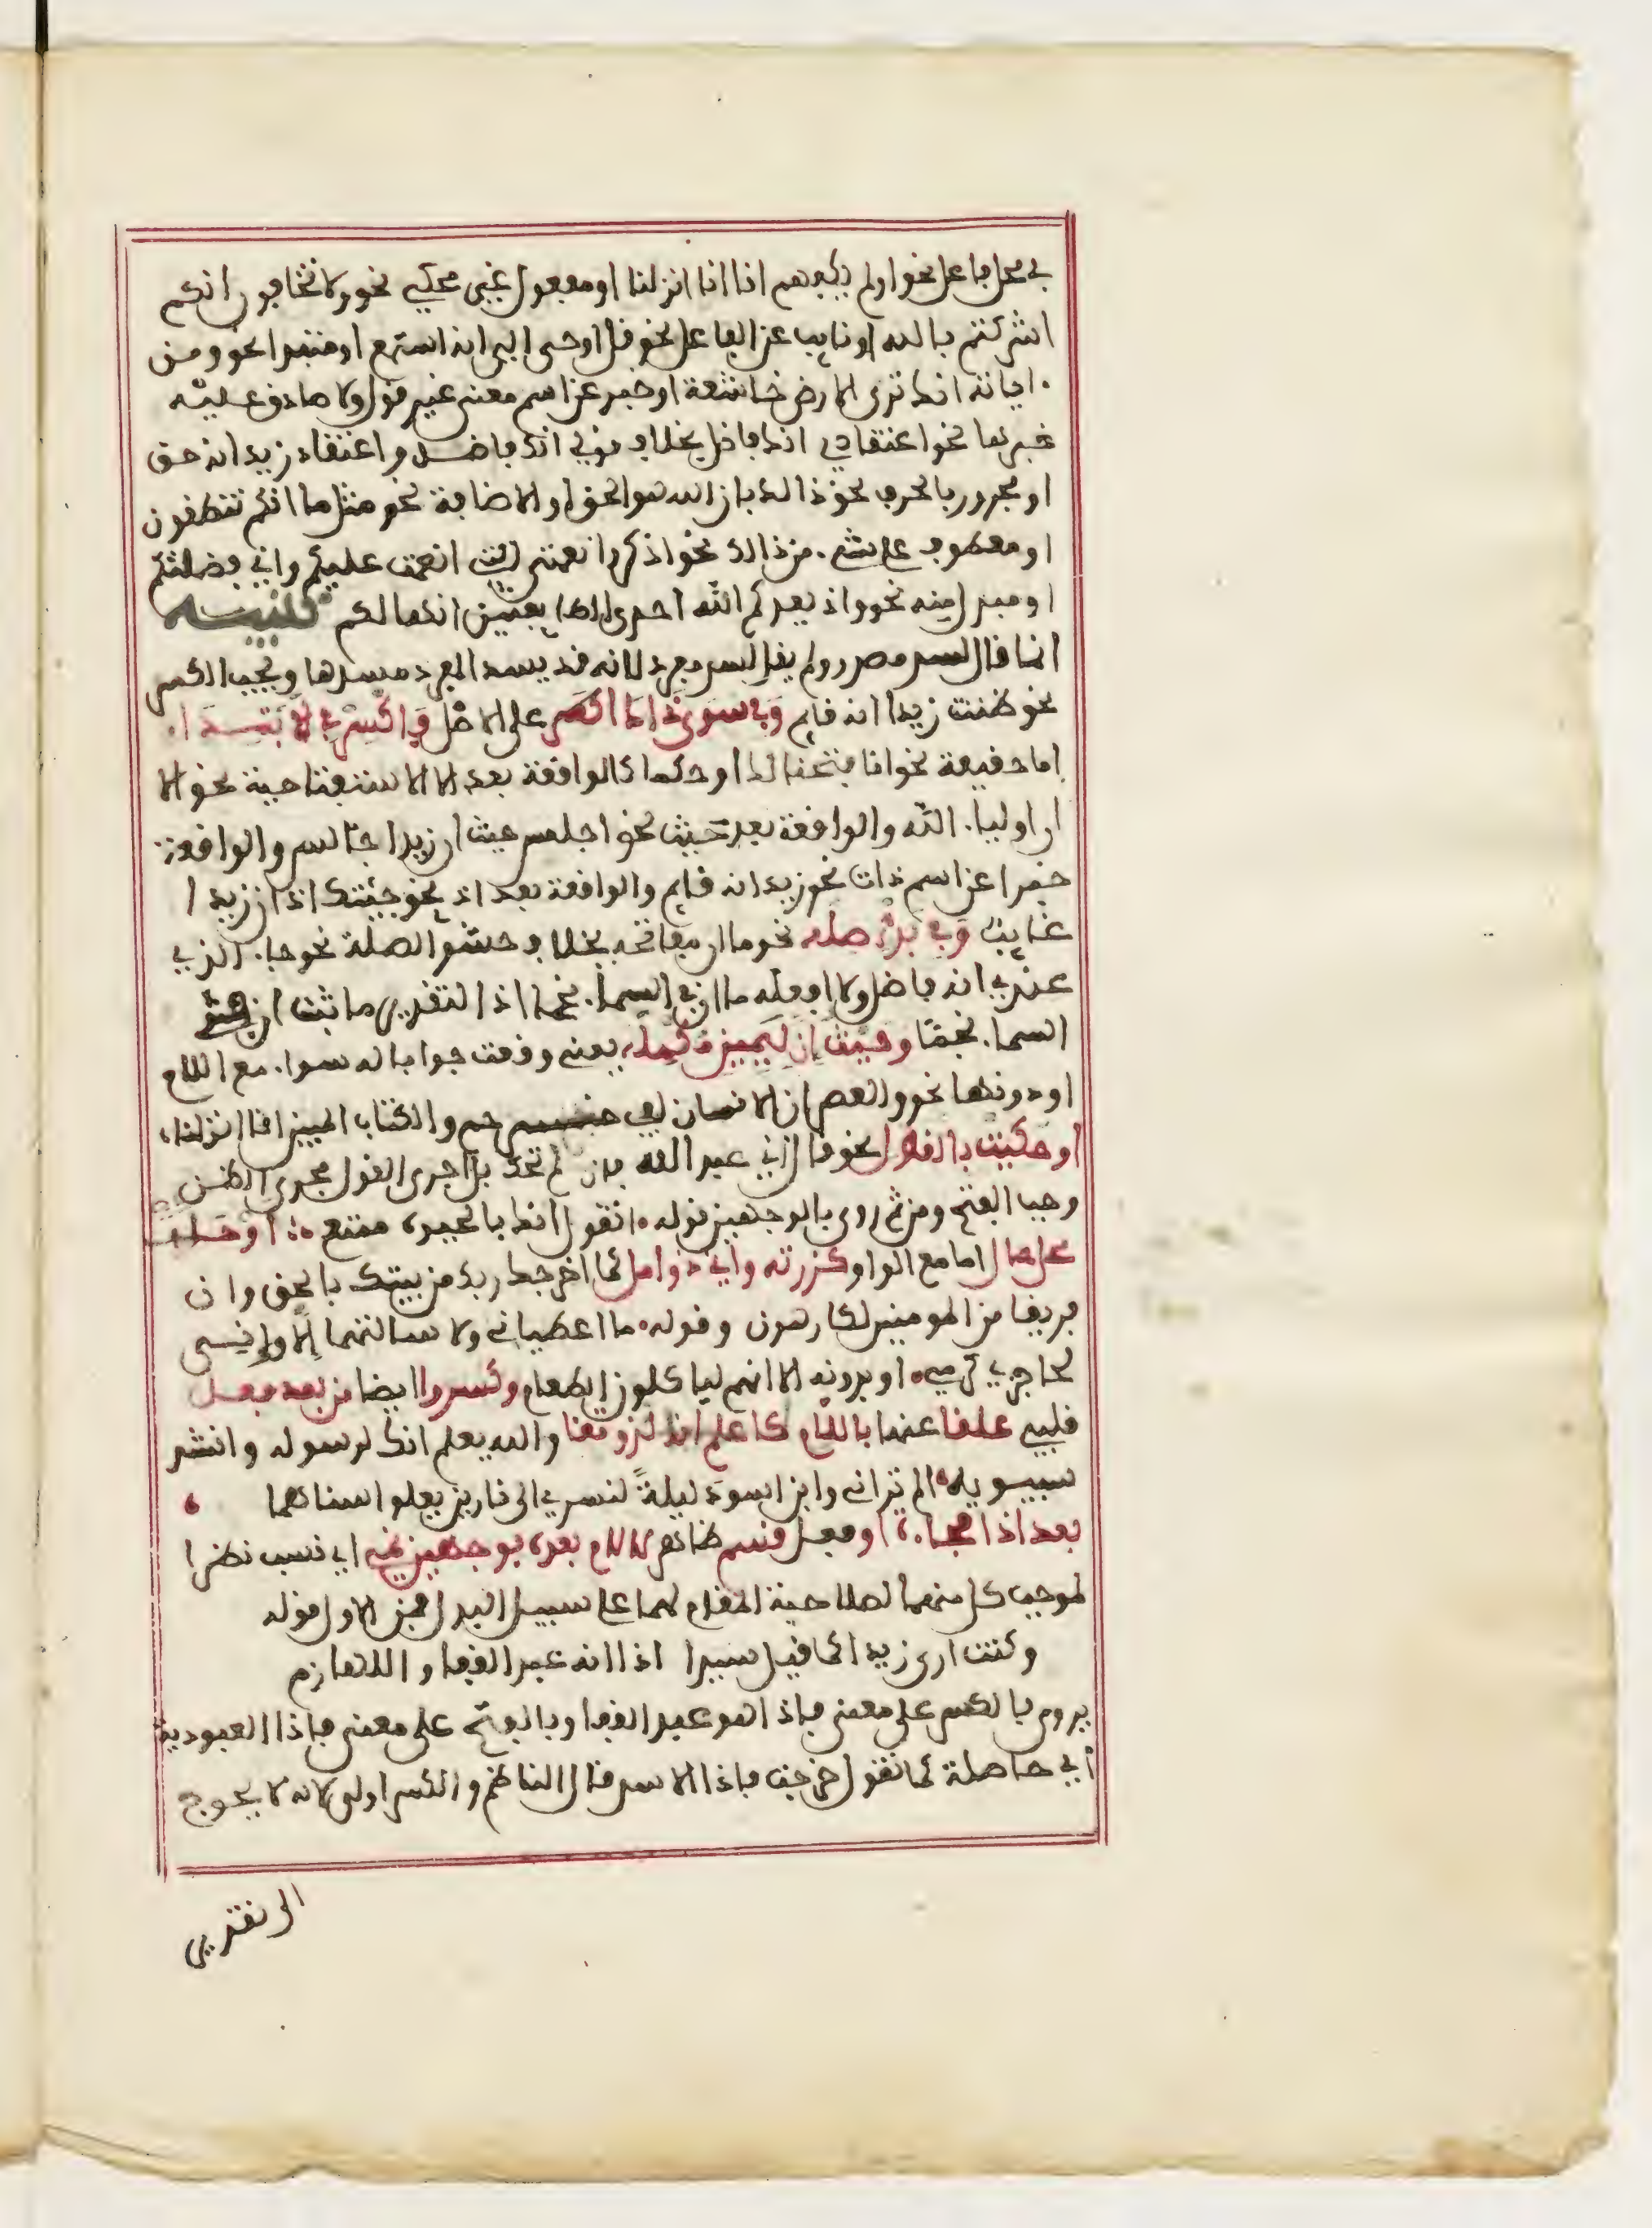 في محل فاعل نحو اولم يكفهم انا انا انزلنا او مفعول غير محكي نحو ولا تخافون انكم
اشركتم بالله او نايب عن الفاعل نحو قل اوحي الي انه استمع او مبتدا نحو ومن
اياته انك ترى الارض خاشعة او خبر عن اسم معنى غير قول ولا صادق عليه
خبرها نحو اعتقادي انك فاضل بخلاف قولي انك فاضل واعتقاد زيد انه حق
او مجرور بالحرف نحو ذالك بان الله هو الحق او الاضافة نحو مثل ما انكم تنطقون
او معطوف على شيء من ذالك نحو اذكروا نعمتي التي انعمت عليكم واني فضلتكم
او مبدل منه نحو واذ يعدكم الله احدى الطايفتين انها لكم تنبيه
انما قال لسد مصدر ولم يقل لسد مفرد لانه قد يسد المفرد مسدها ويجب الكسر
نحو ظننت زيدا انه قايم وفي سوى ذاك اكسر على الاصل فاكسر في الابتدا
اما حقيقة نحو انا فتحنا لك او حكما كالواقعة بعد الا الاستفتاحية نحو الا
ان اوليا الله والواقعة بعد حيث نحو اجلس حيث ان زيدا جالس والواقعة
خبرا عن اسم ذات نحو زيد انه قايم والواقعة بعد اذ نحو جئتك اذ ان زيدا
غايب وفي بدء صله نحو ما ان مفاتحه بخلاف حشو الصلة نحو جا الذي
عندي انه فاضل ولا افعله ما ان في السما نجما اذ التقدير ما ثبت ان في
السما نجما وحيث ان ليمين مكمله يعني وقعت جوابا له سوا مع اللام
او دونها نحو والعصر ان الانسان لفي خسر حم والكتاب المبين انا انزلناه
او حكيت بالقول نحو قال اني عبد الله فان لم تحك بل اجري القول مجرى الظن
وجب الفتح ومن ثم روي بالوجهين قوله اتقول انك بالحياة ممتع او حلت
محل حال اما مع الواو كزرته واني ذو امل كما اخرجك ربك من بيتك بالحق وان
فريقا من المومنين لكارهون وقوله ما اعطياني ولا سالتهما الا واني
لحاجزي كرمي او بدونه الا انهم لياكلون الطعام وكسروا ايضا من بعد فعل
قلبي علقا عنها باللام كاعلم انه لذو تقى والله يعلم انك لرسوله وانشد
سيبويه الم تر اني وابن اسود ليلة لنسري الى نارين يعلو سناهما
بعد اذا فجاءة او فعل قسم ظاهر لا لام بعده بوجهين نمي اي نسب نظرا
لموجب كل منهما لصلاحية المقام لهما على سبيل البدل فمن الاول قوله
وكنت ارى زيدا كما قيل سيدا اذا انه عبد القفا واللهازم
يروى بالكسر على معنى فاذا هو عبد القفا وبالفتح على معنى فاذا العبودية
اي حاصلة كما تقول خرجت فاذا الاسد قال الناظم والكسر اولى لانه لا يحوج
الى تقدير